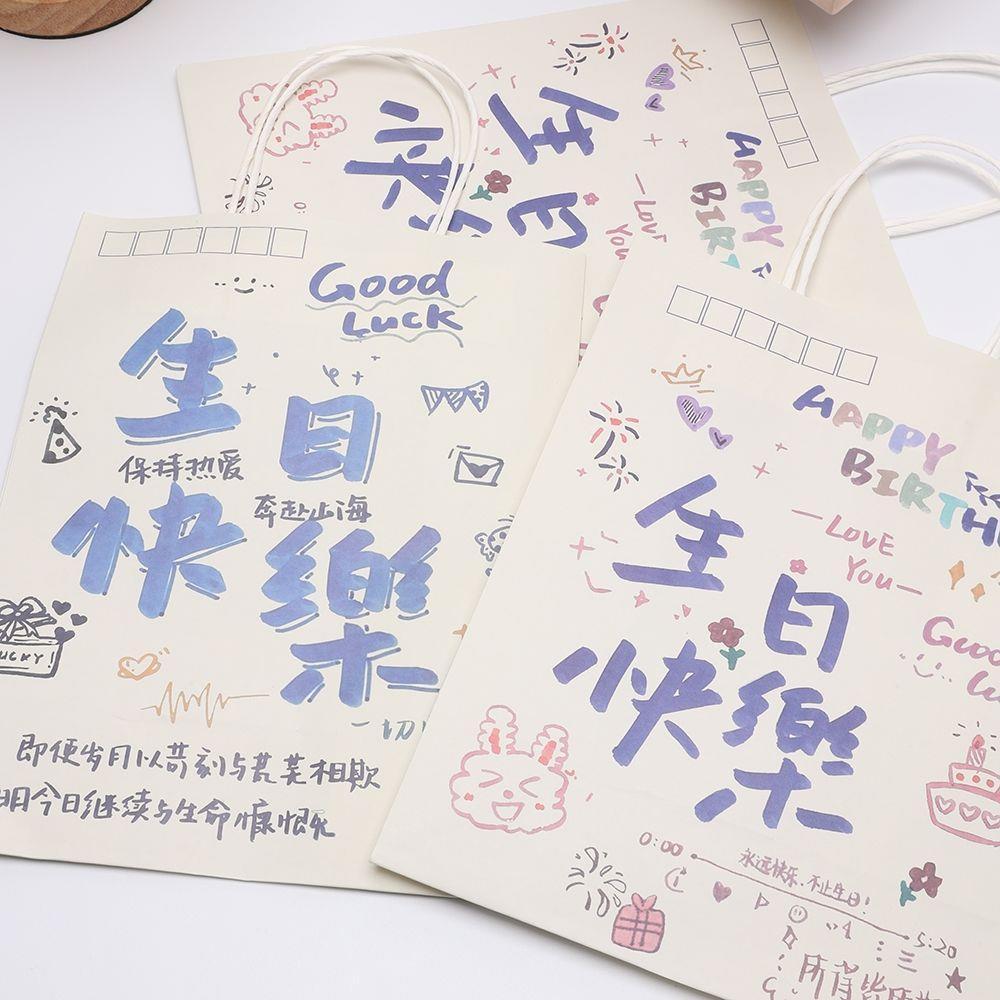 生日
快
HAPPY
BIRT
—LOVE
YOU
Good
Luck
生日
保持热爱
奔赴山海
快樂
UCKY!
一切
即便岁月以苛刻与荒芜相欺
明今日继续与生命慷慨
HAPPY
BIRTH
—LOVE
YOU—
Good
生日
快樂
0:00
永远快乐,不止生日!
5:20